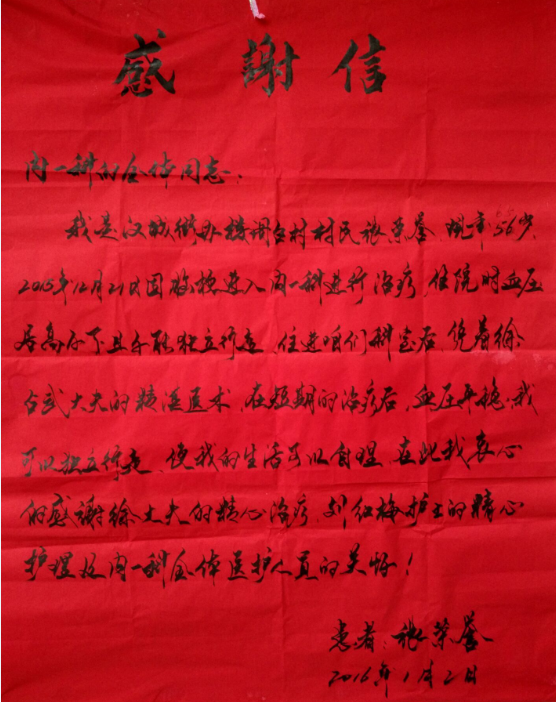 感謝信
内一科的全体同志：
我是汉城街办楼阁台村村民张荣誉，现年56岁，
2015年12月21日因脑梗进入内一科进行治疗，住院时血压
居高不下且不能独立行走，住进咱们科室后，凭着徐
武大夫的精湛医术，在短期的治疗后，血压平稳，我
可以独立行走，使我的生活可以自理，在此我衷心
的感谢徐大夫的精心治疗，刘红梅护士的精心
护理及内一科全体医护人员的关怀！
患者：张荣誉
2016年1月2日